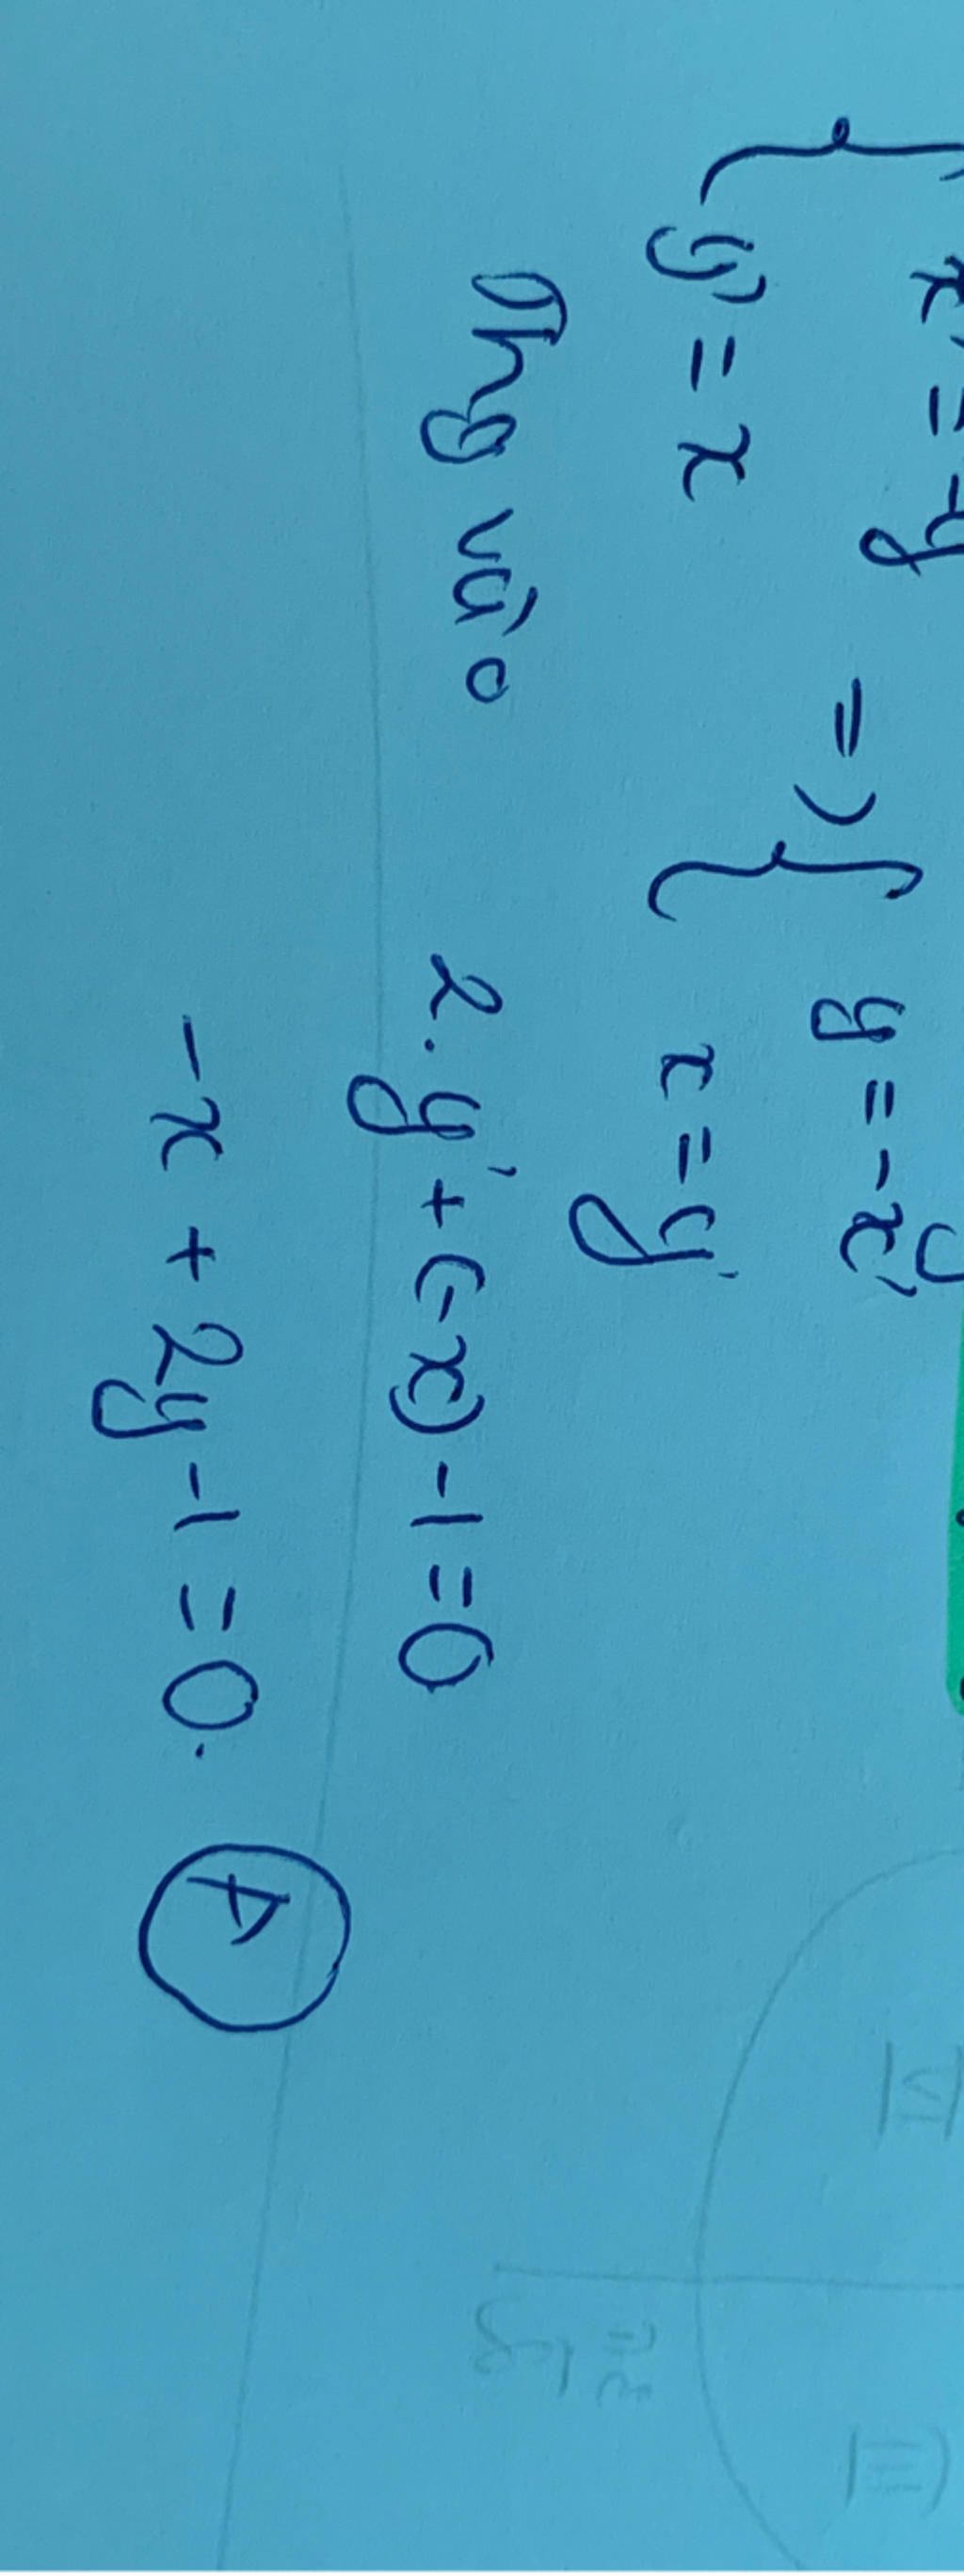 { x' = -y => { y = -x'
y' = x x = y'
Thay vào 2.y' + (-x) - 1 = 0
-x + 2y - 1 = 0.
A